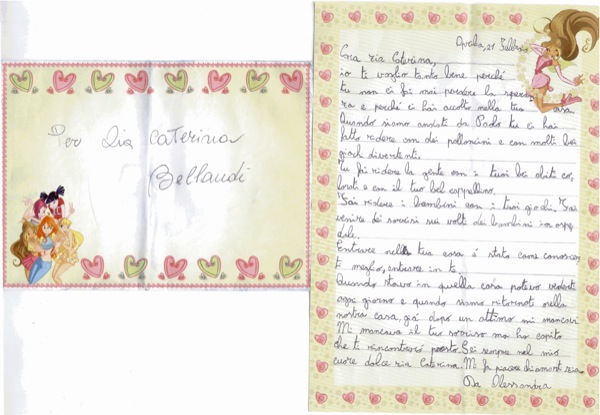 Per Zia Caterina
Bellandi
Opaka, 21 Febbraio
Cara zia Caterina,
io ti voglio tanto bene perché
tu non ci fai mai perdere la speran
za e perché ci hai accolto nella tua casa.
Quando siamo andati da Paolo tu ci hai
fatto ridere con dei palloncini e con molti bei
giochi divertenti.
Tu fai ridere la gente con i tuoi bei abiti co_
lorati e con il tuo bel cappellino.
Fai ridere i bambini con i tuoi giochi. Fai
venire dei sorrisi sui volti dei bambini in ospe
dale.
Entrare nella tua casa é stato come conoscer
ti meglio, entrare in te.
Quando stavo in quella casa potevo vederti
ogni giorno e quando siamo ritornati nella
nostra casa, già dopo un attimo mi mancavi
Mi mancava il tuo sorriso ma ho capito
che ti rincontrerò presto. Sei sempre nel mio
cuore dolce zia Caterina. Mi fa piacere chiamarti zia.
Da Alessandra